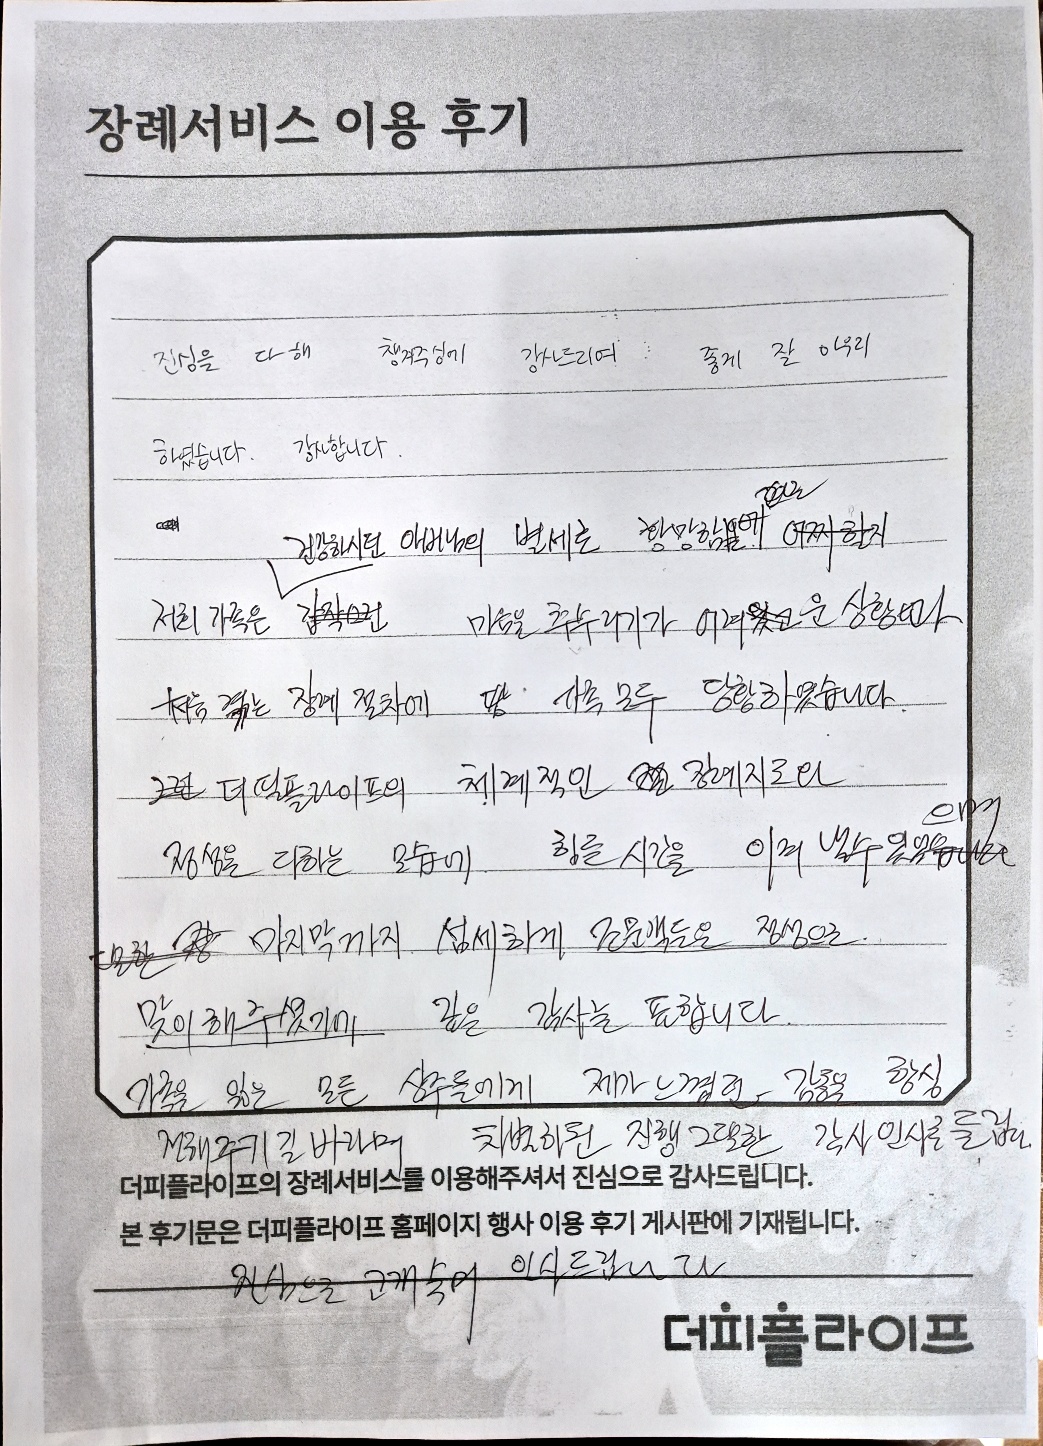 장례서비스 이용 후기
진심을 다해 챙겨주심에 감사드리며 좋게 잘 마무리
하였습니다. 감사합니다.
건강하시던 아버님의 별세로 황망함에 어찌할지
저희 가족은 갑작스런 마음을 추수리기가 어려운 상황
처음 겪는 장례 절차에 가족 모두 당황하였습니다.
더피플라이프의 체계적인 장례지도와
정성을 다하는 모습에 힘든 시간을 이겨 낼수 있었
으며
마지막까지 섬세하게 정성으로
맞이해주셨기에 깊은 감사를 표합니다.
가족을 잃은 모든 상주들에게 제가 느꼈던 감동을 항상
전해주기길 바라며 진행 감사 인사를 드립니다.
더피플라이프의 장례서비스를 이용해주셔서 진심으로 감사드립니다.
본 후기문은 더피플라이프 홈페이지 행사 이용 후기 게시판에 기재됩니다.
진심으로 고개숙여 인사드립니다
더피플라이프